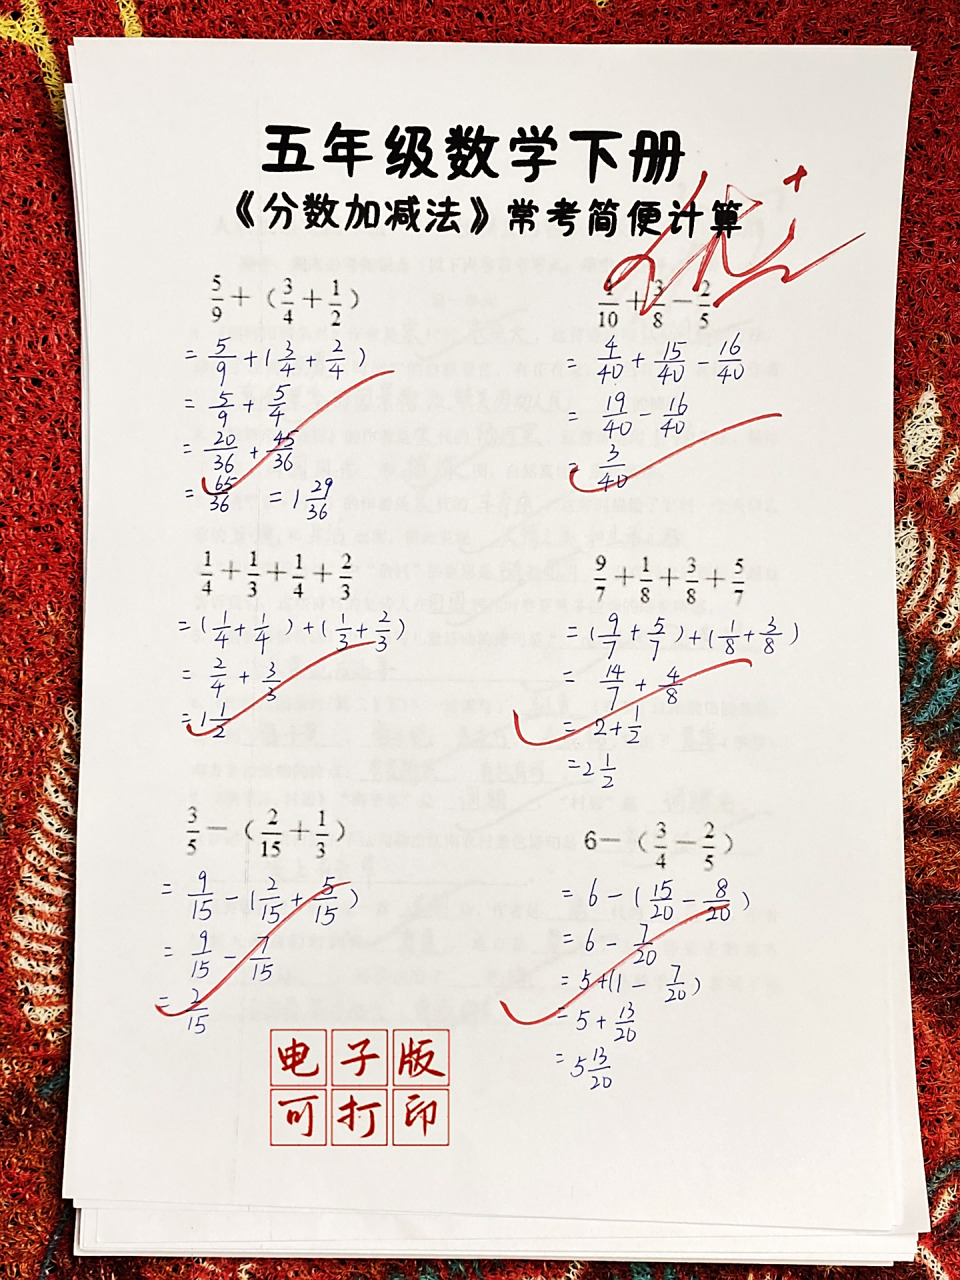 五年级数学下册
《分数加减法》常考简便计算
优+
5/9+（3/4+1/2）
=5/9+(3/4+2/4)
=5/9+5/4
=20/36+45/36
=65/36 =1 29/36
1/10+3/8-2/5
=4/40+15/40-16/40
=19/40-16/40
=3/40
1/4+1/3+1/4+2/3
=(1/4+1/4)+(1/3+2/3)
=2/4+3/3
=1 1/2
9/7+1/8+3/8+5/7
=(9/7+5/7)+(1/8+3/8)
=14/7+4/8
=2+1/2
=2 1/2
3/5-（2/15+1/3）
=9/15-(2/15+5/15)
=9/15-7/15
=2/15
6-（3/4-2/5）
=6-(15/20-8/20)
=6-7/20
=5+(1-7/20)
=5+13/20
=5 13/20
电子版
可打印